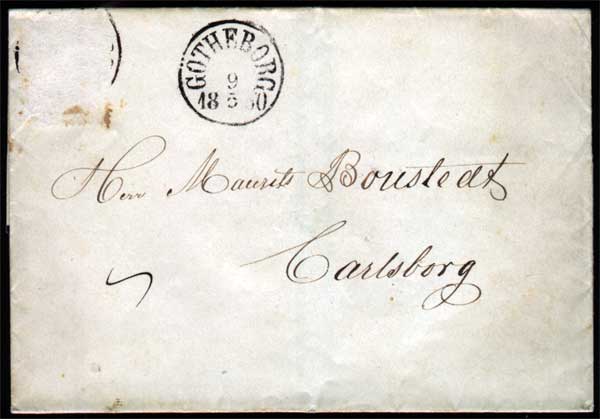 GÖTHEBORG
9
18 5 60
Herr Maurits Boustedt
Carlsborg